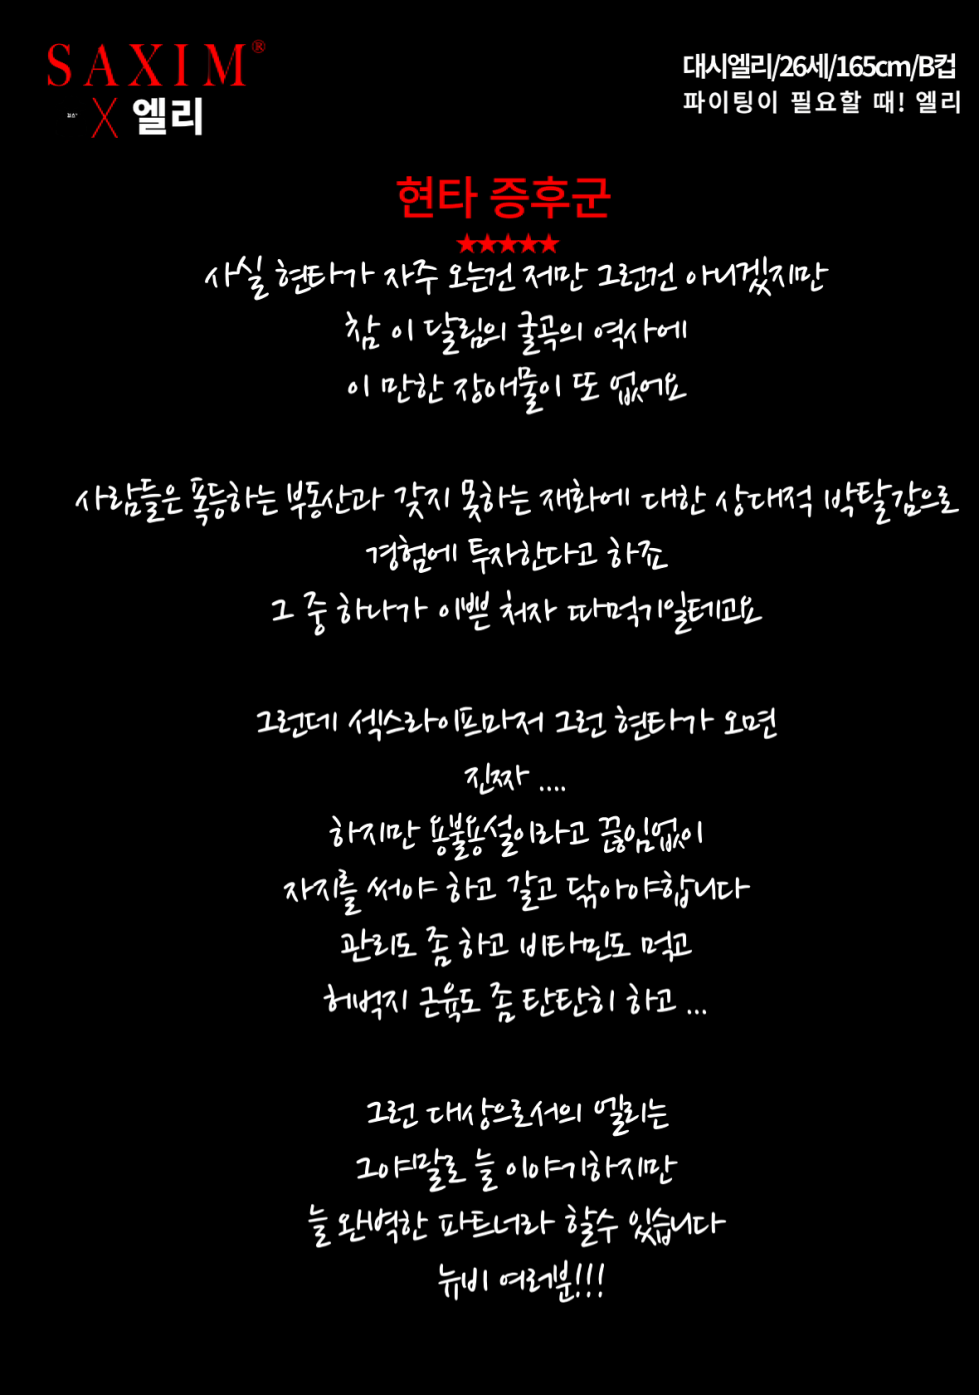 SAXIM®
X 엘리
대시엘리/26세/165cm/B컵
파이팅이 필요할 때! 엘리
현타 증후군
★★★★★
사실 현타가 자주 오는건 저만 그런건 아니겠지만
참 이 달림의 굴곡의 역사에
이 만한 장애물이 또 없어요
사람들은 폭등하는 부동산과 갖지 못하는 재화에 대한 상대적 박탈감으로
경험에 투자한다고 하죠
그 중 하나가 이쁜 처자 따먹기일테고요
그런데 섹스라이프마저 그런 현타가 오면
진짜 ....
하지만 용불용설이라고 끊임없이
자지를 써야 하고 갈고 닦아야합니다
관리도 좀 하고 비타민도 먹고
허벅지 근육도 좀 탄탄히 하고 ...
그런 대상으로서의 엘리는
그야말로 늘 이야기하지만
늘 완벽한 파트너라 할수 있습니다
뉴비 여러분!!!